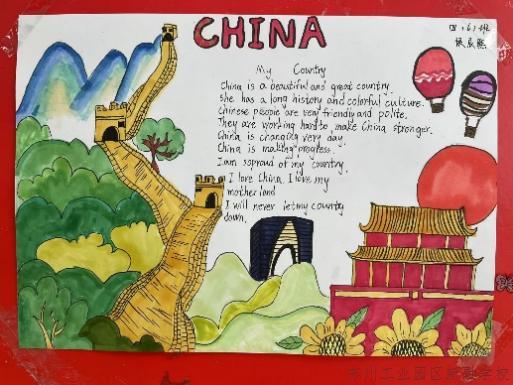 CHINA
四、(6)班
My Country
China is a beautiful and great country.
She has a long history and colorful culture.
Chinese people are very friendly and polite.
They are working hard to make China stronger.
China is changing very day.
China is making progress.
I am soproud of my country.
I love China. I love my
mother land
I will never let my country
down.
苏州工业园区
学校